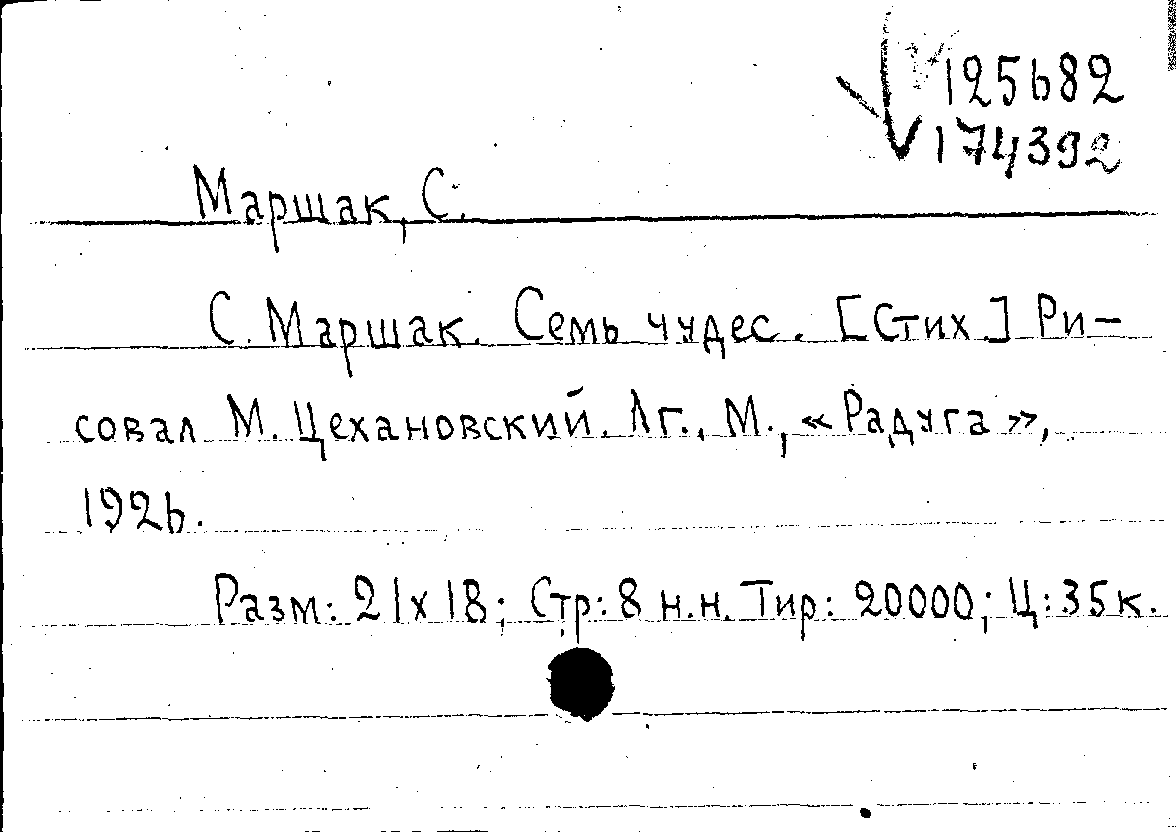 125682
174392
Маршак, С.
С. Маршак. Семь чудес. [Стих.] Ри-
совал М. Цехановский. Лг., М., «Радуга»,
1926.
Разм: 21х18; Стр: 8 н.н. Тир: 20000; Ц: 35к.